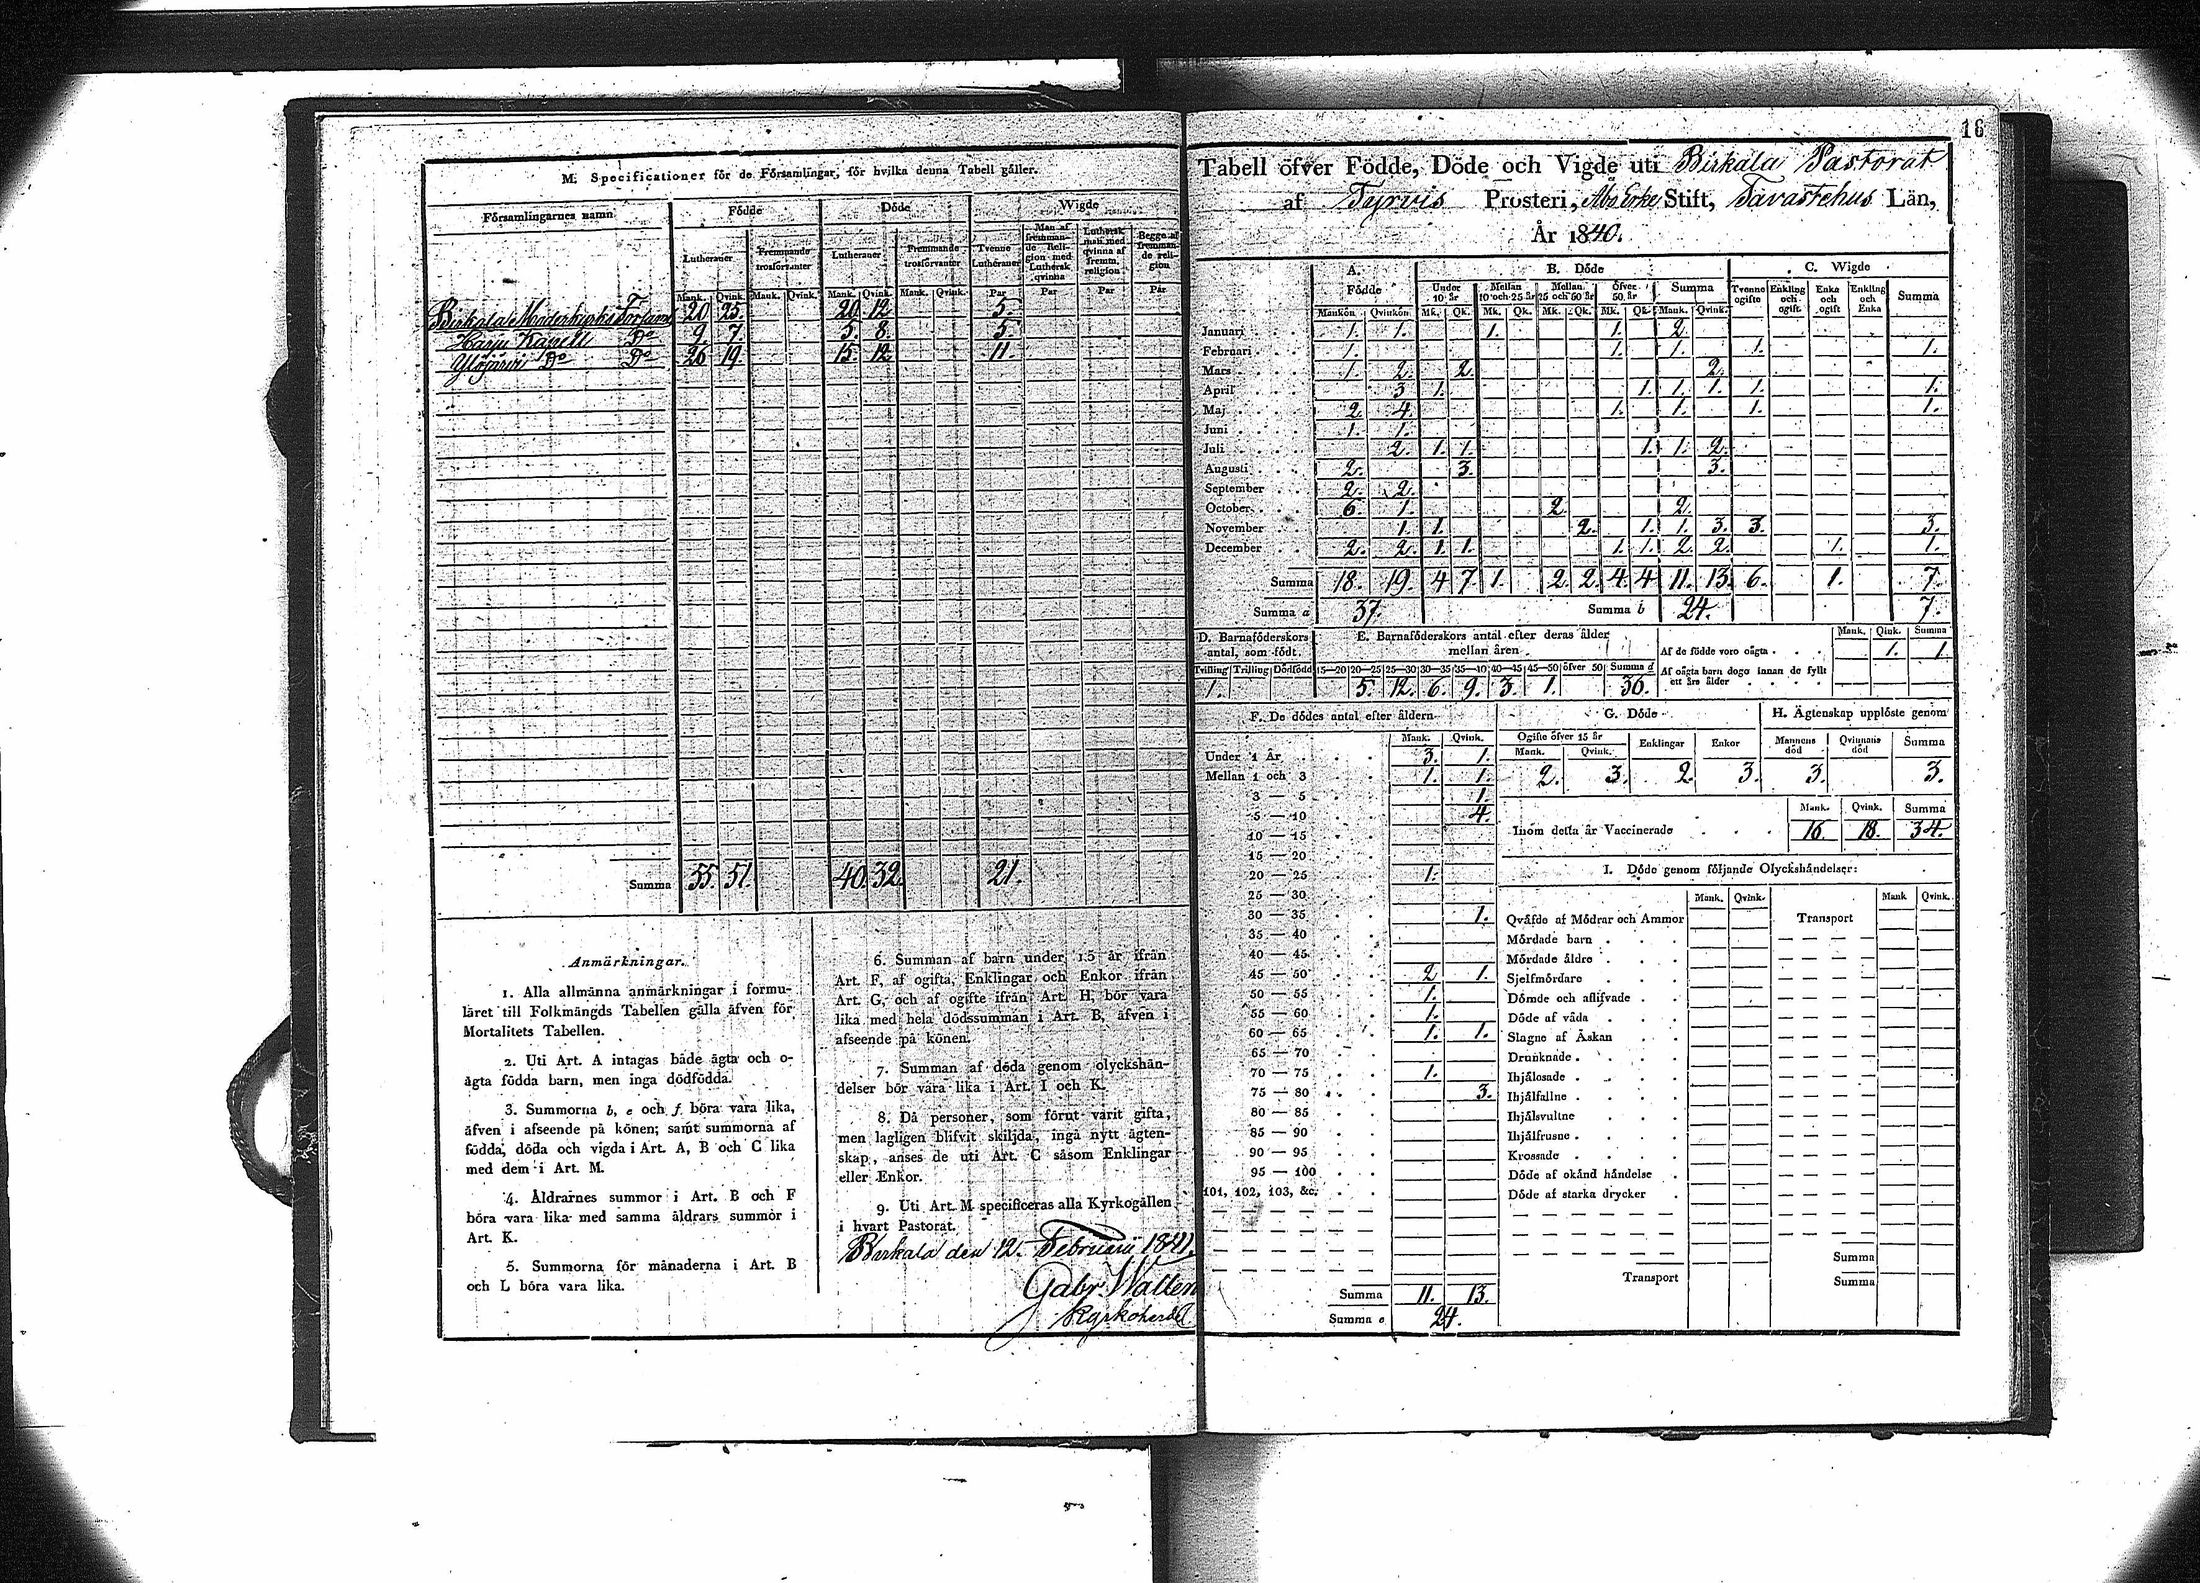 M. Specificationer för de Församlingar, för hvilka denna Tabell gäller.
Församlingarnes namn Födde Döde Wigde
Lutheraner Fremmande trosförvanter Lutheraner Fremmande trosförvanter Tvenne Lutheraner Man af fremmande Religion med Luthersk qvinna Luthersk man med qvinna af fremm. religion Begge af fremmande religion
Mank. Qvink. Mank. Qvink. Mank. Qvink. Mank. Qvink. Par Par Par Par
Birkala Moderkyrko Församl 20 25. 20 12. 5.
Harju Kapell Do 9. 7. 5. 8. 5.
Ylöjärvi Do Do 26 19. 15. 12. 11.
Summa 55. 51. 40. 32. 21.
Anmärkningar.
1. Alla allmänna anmärkningar i formu-
läret till Folkmängds Tabellen gälla äfven för
Mortalitets Tabellen.
2. Uti Art. A intagas både ägta och o-
ägta födda barn, men inga dödfödda.
3. Summorna b, e och f böra vara lika,
äfven i afseende på könen; samt summorna af
födda, döda och vigda i Art. A, B och C lika
med dem i Art. M.
4. Åldrarnes summor i Art. B och F
böra vara lika med samma åldrars summor i
Art. K.
5. Summorna för månaderna i Art. B
och L böra vara lika.
6. Summan af barn under 15 år ifrån
Art. F, af ogifta, Enklingar och Enkor ifrån
Art. G, och af ogifte ifrån Art. H, bör vara
lika med hela dödssumman i Art. B, äfven i
afseende på könen.
7. Summan af döda genom olyckshän-
delser bör vara lika i Art. I och K.
8. Då personer, som förut varit gifta,
men lagligen blifvit skiljda, ingå nytt ägten-
skap, anses de uti Art. C såsom Enklingar
eller Enkor.
9. Uti Art. M specificeras alla Kyrkogällen
i hvart Pastorat.
Birkala den 12. Februarii 1841.
Gabr. Wallen
Kyrkoherde
16
Tabell öfver Födde, Döde och Vigde uti Birkala Pastorat
af Tyrvis Prosteri, Åbo Erke Stift, Tavastehus Län,
År 1840.
A. Födde B. Döde C. Wigde
Under 10 år Mellan 10 och 25 år Mellan 25 och 50 år Öfver 50 år Summa Tvenne ogifte Enkling och ogift Enka och ogift Enkling och Enka Summa
Mankön Qvinkön Mk. Qk. Mk. Qk. Mk. Qk. Mk. Qk. Mank. Qvink.
Januari 1. 1. 1. 1. 2.
Februari 1. 1. 1. 1. 1.
Mars 1. 2. 2. 2.
April 3. 1. 1. 1. 1. 1. 1.
Maj 2. 4. 1. 1. 1. 1.
Juni 1. 1.
Juli 2. 1. 1. 1. 1. 2.
Augusti 2. 3. 3.
September 2. 2.
October 6. 1. 2. 2.
November 1. 1. 2. 1. 1. 3. 3. 3.
December 2. 2. 1. 1. 1. 1. 2. 2. 1. 1.
Summa 18. 19. 4 7. 1. 2. 2. 4. 4 11. 13. 6. 1. 7.
Summa a 37. Summa b 24. 7.
D. Barnaföderskors antal, som födt. E. Barnaföderskors antal efter deras ålder mellan åren
Mank. Qink. Summa
Af de födde voro oägta 1. 1.
Tvilling Trilling Dödfödd 15—20 20—25 25—30 30—35 35—40 40—45 45—50 öfver 50 Summa d
Af oägta barn dogo innan de fyllt ett års ålder
1. 5. 12. 6. 9. 3. 1. 36.
F. De dödes antal efter åldern
Mank. Qvink.
Under 1 År 3. 1.
Mellan 1 och 3 1. 1.
3 — 5 1.
5 — 10 4.
10 — 15
15 — 20
20 — 25 1.
25 — 30
30 — 35 1.
35 — 40
40 — 45
45 — 50 2 1.
50 — 55 1.
55 — 60 1.
60 — 65 1. 1.
65 — 70
70 — 75 1.
75 — 80 3.
80 — 85
85 — 90
90 — 95
95 — 100
101, 102, 103, &c.
Summa 11. 13.
Summa e 24.
G. Döde
Ogifte öfver 15 år Enklingar Enkor
Mank. Qvink.
2. 3. 2 3.
H. Ägtenskap upplöste genom
Mannens död Qvinnans död Summa
3. 3.
Mank. Qvink. Summa
Inom detta år Vaccinerade 16 18. 34.
I. Döde genom följande Olyckshändelser:
Mank. Qvink. Mank Qvink.
Qväfde af Mödrar och Ammor Transport
Mördade barn
Mördade äldre
Sjelfmördare
Dömde och aflifvade
Döde af våda
Slagne af Åskan
Drunknade
Ihjälosade
Ihjälfallne
Ihjälsvultne
Ihjälfrusne
Krossade
Döde af okänd händelse
Döde af starka drycker
Summa
Transport Summa